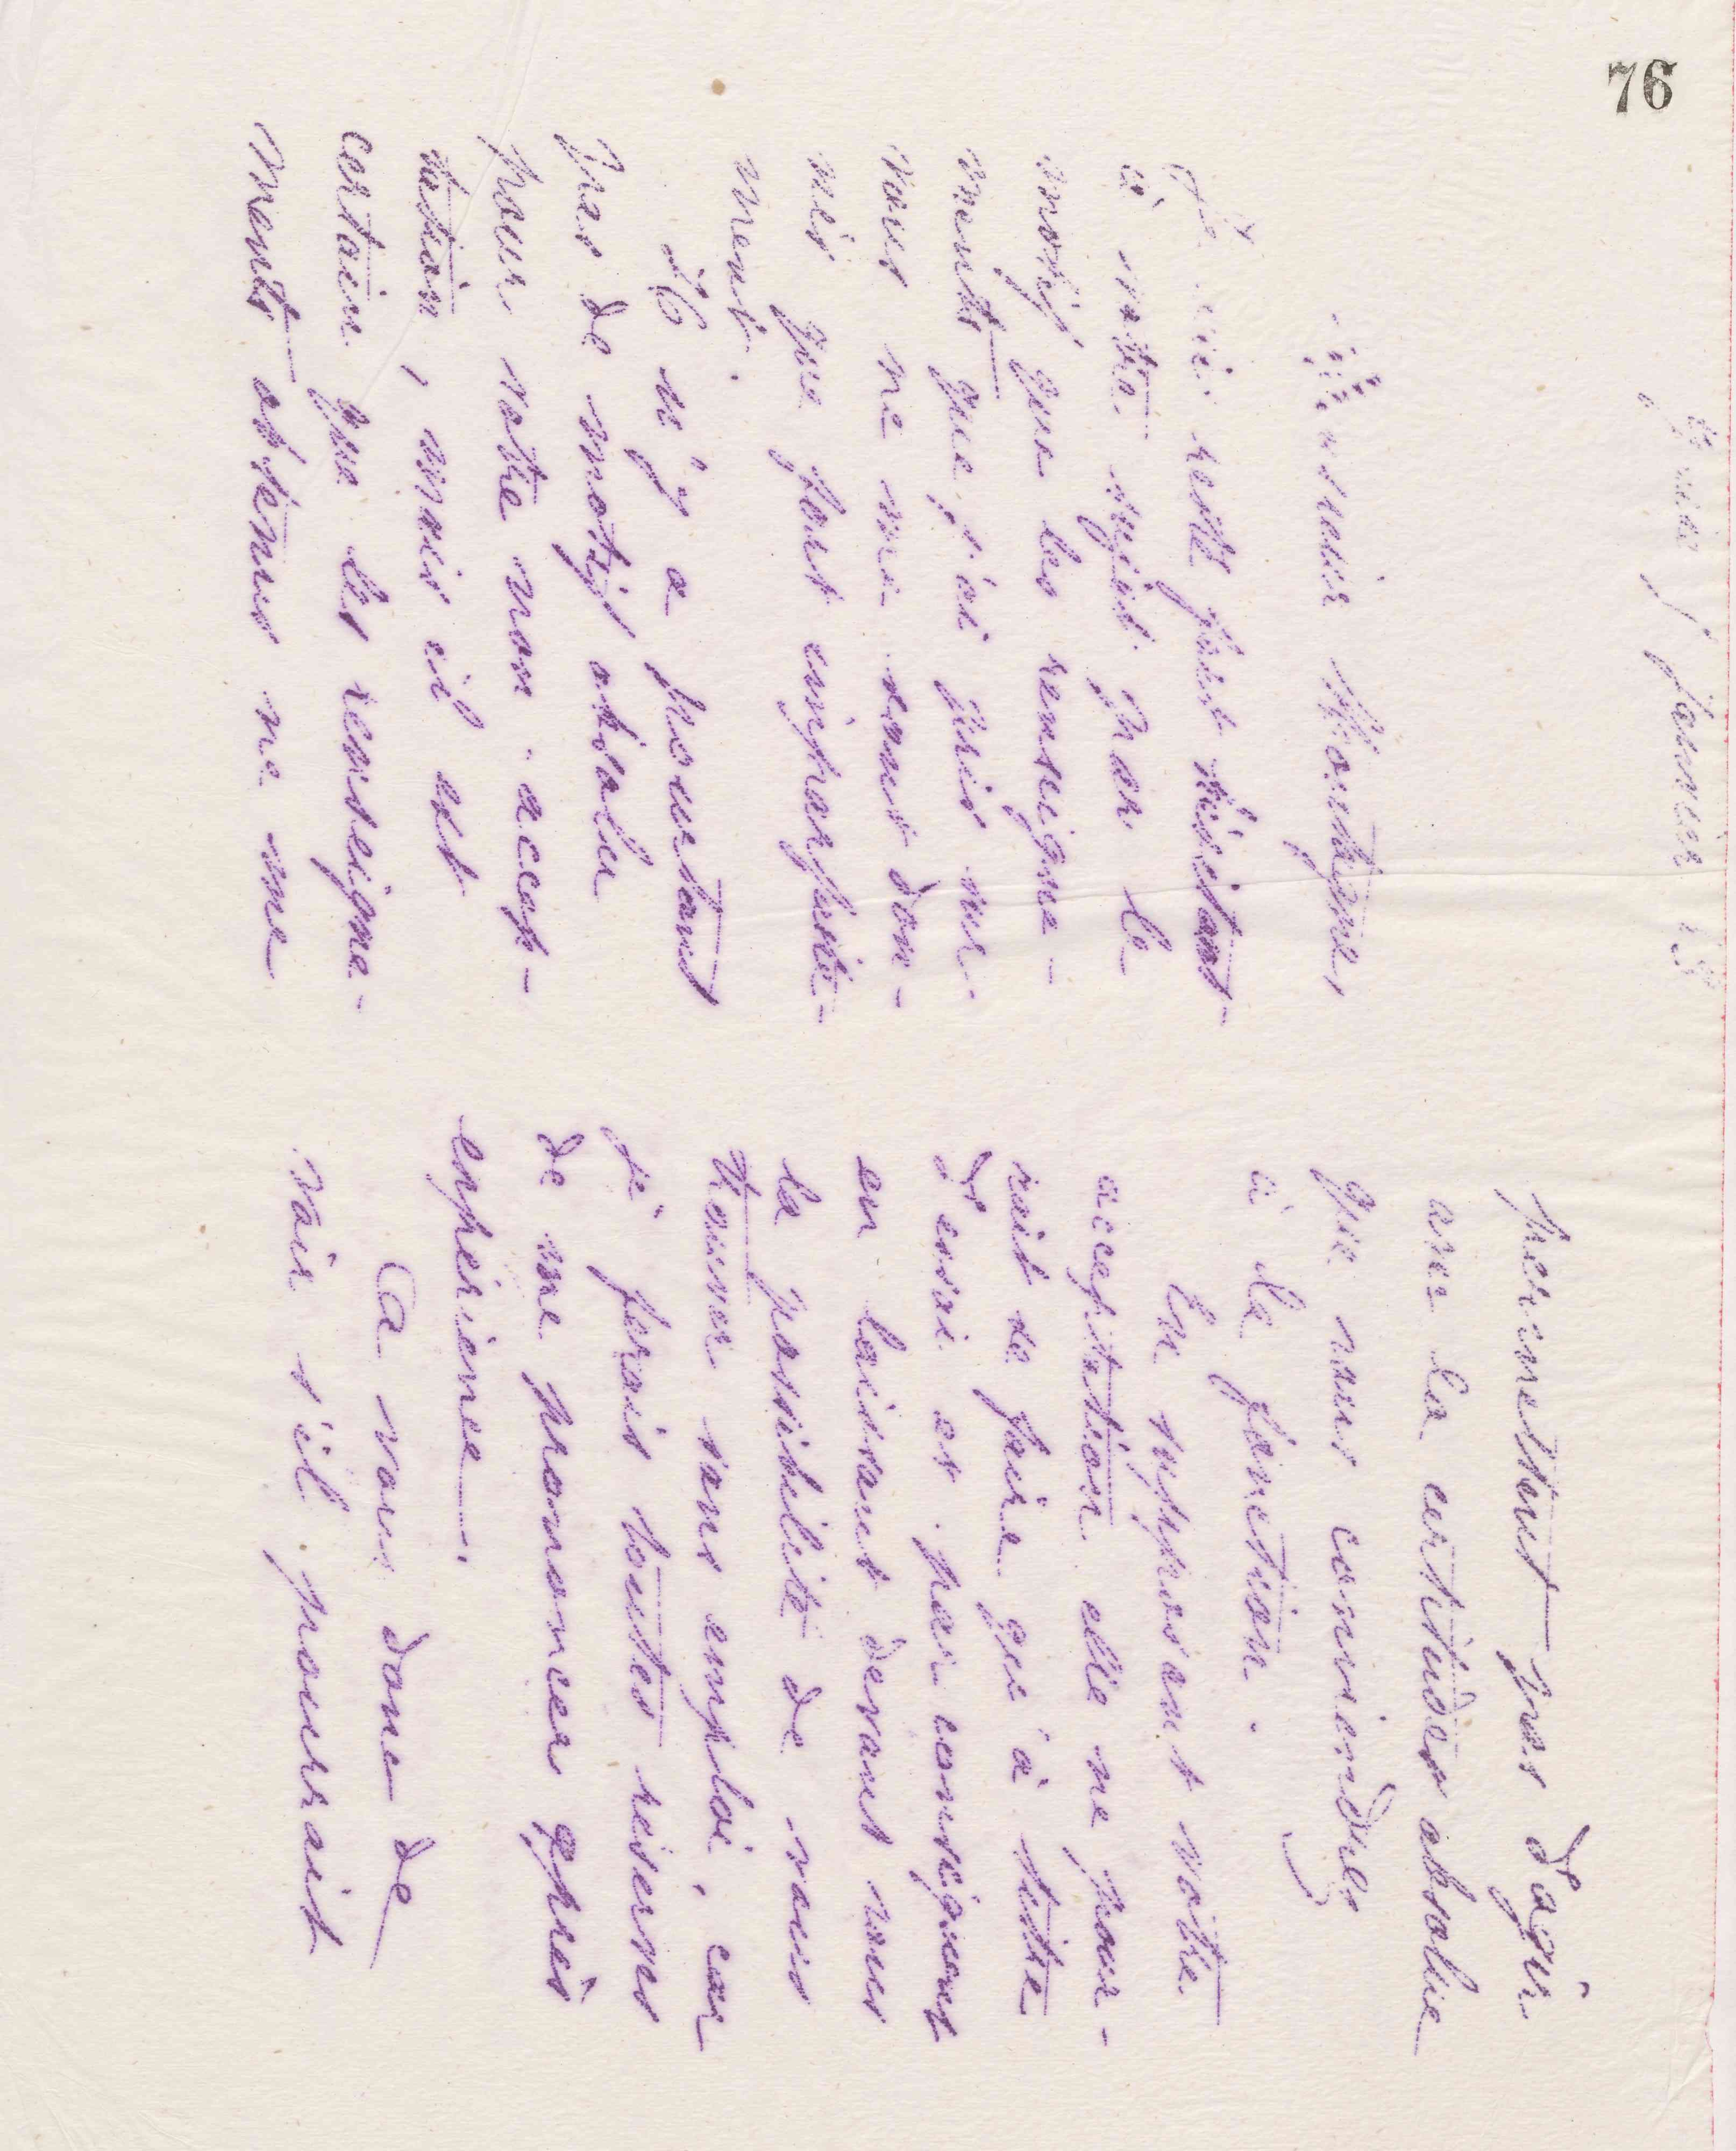 76
Janvier
Monsieur Montagne,
Je suis resté fort hésitant
à votre sujet par le
motif que les renseigne-
ments que j'ai pris sur
vous ne me sont don-
nés que fort imparfaite-
ment.
Il n'y a pourtant
pas de motif absolu
pour votre non-accep-
tation, mais il est
certain que les renseigne-
ments obtenus ne me
permettent pas d'agir
avec la certitude absolue
que vous conviendrez
à la fonction.
En supposant votre
acceptation elle ne pour-
rait se faire qu'à titre
d'essai et par conséquent
en laissant devant vous
la possibilité de vous
trouver sans emploi, car
je ferais toutes réserves
de me prononcer après
expérience.
A vous donc de
voir s'il pourrait